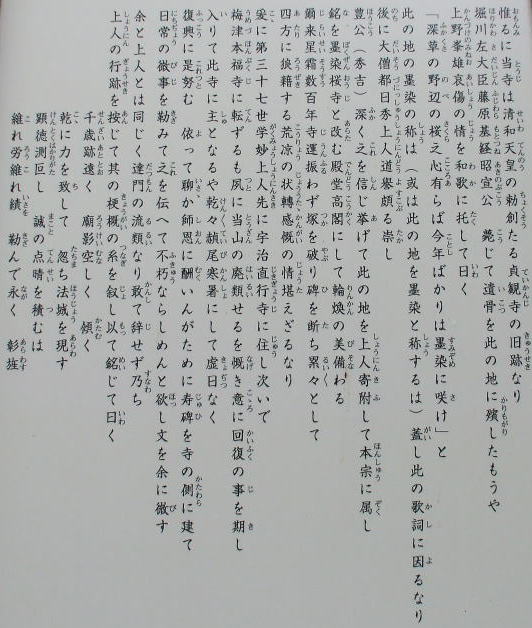 惟るに当寺は清和天皇の勅創たる貞観寺の旧跡なり
堀川左大臣藤原基経昭宣公 薨じて遺骨を此の地に殯したもうや
上野峯雄哀傷の情を和歌に托して曰く
「深草の野辺の桜之心有らば今年ばかりは墨染に咲け」と
此の地の墨染の称は(或は此の地を墨染と称するは)蓋し此の歌詞に因るなり
後に大僧都日秀上人道誉頗る崇し
豊公(秀吉)深く之を信じ挙げて此の地を上人寄附して本宗に属し
銘を墨染桜寺と改む殿堂高閣にして輪煥の美備わる
爾来星霜数年寺運振わず塚を破り碑を断ち累々として
四方に狭籍する荒凉の状轉感慨の情堪えざるなり
爰に第三十七世学妙上人先に宇治直行寺に住し次いで
梅津本福寺に転ずるも夙に当山の廃頽せるを慨き意に回復の事を期し
入りて此寺に主となるや乾々赬尾寒暑にして虚日なく
復興に是努む 依って聊か師恩に酬いんがために寿碑を寺の側に建て
日常の微事を勒みて之を伝へて不朽ならしめんと欲し文を余に徴す
余と上人とは同じく達門の流類なり敢して辞せず乃ち
上人の行跡を按じて其の梗概の系を叙し以て銘じて曰く
千歳跡遠く 廟影空しく 傾く
乾に力を致して 忽ち法城を現す
顕徳測叵し 誠の点晴を積むは
維れ労維れ績 勒んで永く 彰旌